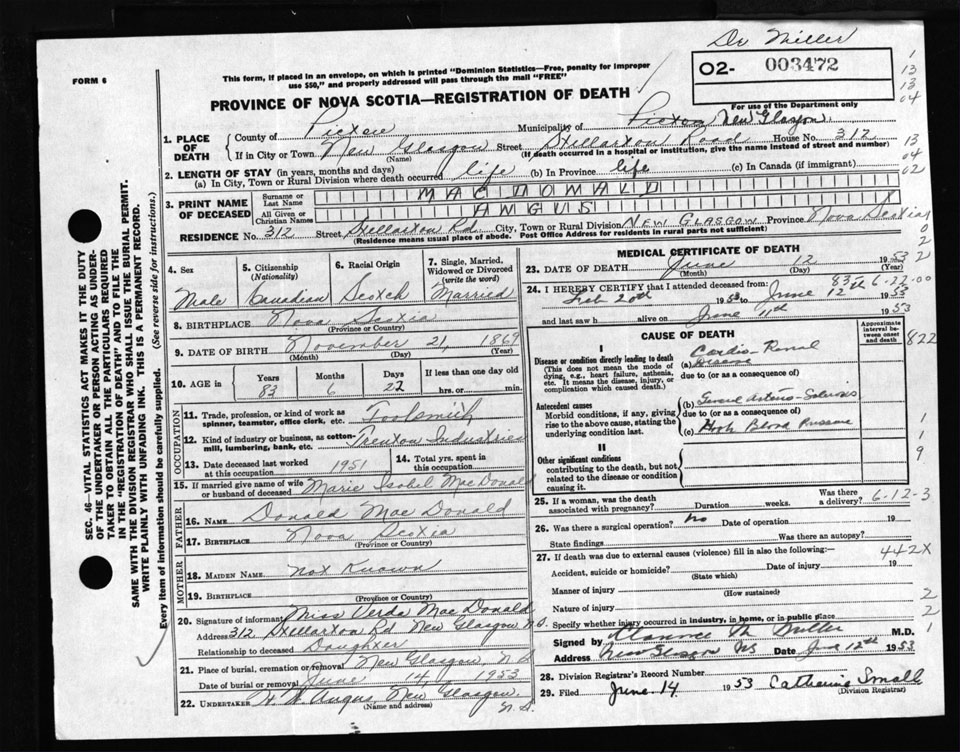 Dr Miller
FORM 6
This form, if placed in an envelope, on which is printed "Dominion Statistics—Free, penalty for improper
use $50," and properly addressed will pass through the mail "FREE"
O2- 003472
For use of the Department only
PROVINCE OF NOVA SCOTIA—REGISTRATION OF DEATH
1. PLACE OF DEATH
County of Pictou Municipality of Pictou New Glasgow
If in City or Town New Glasgow Street Stellarton Road House No. 312
(Name) (If death occurred in a hospital or institution, give the name instead of street and number)
2. LENGTH OF STAY (in years, months and days)
(a) In City, Town or Rural Division where death occurred life (b) In Province life (c) In Canada (if immigrant)
3. PRINT NAME OF DECEASED
Surname or Last Name MACDONALD
All Given or Christian Names ANGUS
RESIDENCE No. 312 Street Stellarton Rd. City, Town or Rural Division NEW GLASGOW Province Nova Scotia
(Residence means usual place of abode. Post Office Address for residents in rural parts not sufficient)
4. Sex Male
5. Citizenship (Nationality) Canadian
6. Racial Origin Scotch
7. Single, Married, Widowed or Divorced (write the word) Married
8. BIRTHPLACE Nova Scotia
(Province or Country)
9. DATE OF BIRTH November 21, 1869
(Month) (Day) (Year)
10. AGE in Years 83 Months 6 Days 22 If less than one day old hrs. or min.
OCCUPATION
11. Trade, profession, or kind of work as spinner, teamster, office clerk, etc. Toolsmith
12. Kind of industry or business, as cotton-mill, lumbering, bank, etc. Trenton Industries
13. Date deceased last worked at this occupation 1951
14. Total yrs. spent in this occupation
15. If married give name of wife or husband of deceased Marie Isobel MacDonald
FATHER
16. NAME Donald MacDonald
17. BIRTHPLACE Nova Scotia
(Province or Country)
MOTHER
18. MAIDEN NAME Not Known
19. BIRTHPLACE
(Province or Country)
20. Signature of informant Miss Verda MacDonald
Address 312 Stellarton Rd New Glasgow N.S.
Relationship to deceased Daughter
21. Place of burial, cremation or removal New Glasgow, N.S.
Date of burial or removal June 14 1953
22. UNDERTAKER Angus New Glasgow. N.S.
(Name and address)
MEDICAL CERTIFICATE OF DEATH
23. DATE OF DEATH June 12 1953
(Month) (Day) (Year)
24. I HEREBY CERTIFY that I attended deceased from:
Feb 20th 1953 to June 12th 1953
and last saw h alive on June 11th 1953
CAUSE OF DEATH
Approximate interval between onset and death
I
Disease or condition directly leading to death
(This does not mean the mode of dying, e.g., heart failure, asthenia, etc. It means the disease, injury, or complication which caused death.)
(a) Cardio-Renal Disease
due to (or as a consequence of)
Antecedent causes
Morbid conditions, if any, giving rise to the above cause, stating the underlying condition last.
(b) General Arterio-Sclerosis
due to (or as a consequence of)
(c) High Blood Pressure
II
Other significant conditions
contributing to the death, but not related to the disease or condition causing it.
25. If a woman, was the death associated with pregnancy? Duration weeks. Was there a delivery? 6-12-3
26. Was there a surgical operation? no Date of operation 19
State findings Was there an autopsy?
27. If death was due to external causes (violence) fill in also the following:— 442X
Accident, suicide or homicide? Date of injury 19
(State which)
Manner of injury
(How sustained)
Nature of injury
Specify whether injury occurred in industry, in home, or in public place
Signed by Clarence M Miller M.D.
Address New Glasgow NS Date June 12th 1953
28. Division Registrar's Record Number
29. Filed June 14 1953 Catherine Small
(Division Registrar)
SEC. 46—VITAL STATISTICS ACT MAKES IT THE DUTY
OF THE UNDERTAKER OR PERSON ACTING AS UNDER-
TAKER TO OBTAIN ALL THE PARTICULARS REQUIRED
IN THE "REGISTRATION OF DEATH" AND TO FILE THE
SAME WITH THE DIVISION REGISTRAR WHO SHALL ISSUE THE BURIAL PERMIT.
WRITE PLAINLY WITH UNFADING INK. THIS IS A PERMANENT RECORD.
Every item of information should be carefully supplied. (See reverse side for instructions.)
1
13
13
04
13
04
02
0
2
2
83 6-22-00
822
1
1
9
2
2
1